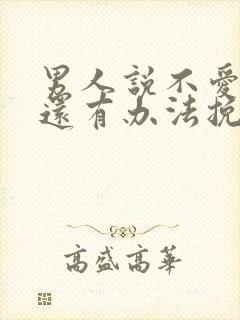 男人説不愛
還有办法挽
高盛高華